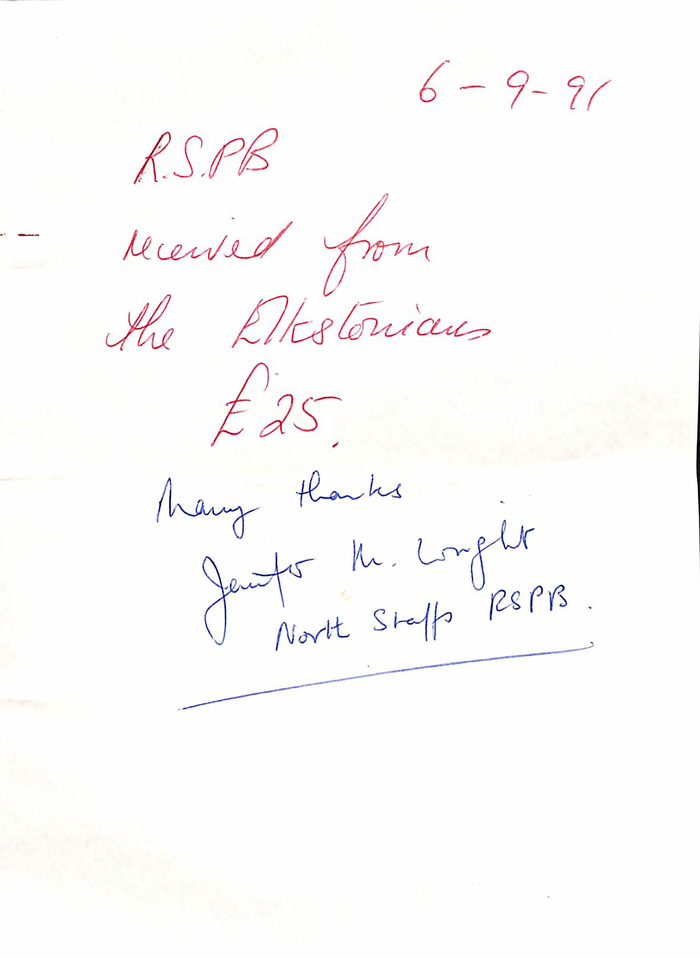 6-9-91
R.S.PB
received from
the Elkstonians
£25.
Many thanks
Jennifer M. Wright
North Staffs RSPB.